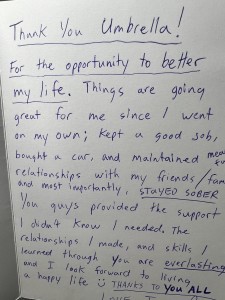 Thank You Umbrella!
For the opportunity to better
my life. Things are going
great for me since I went
on my own; kept a good job,
bought a car, and maintained
relationships with my friends/fam
and most importantly, STAYED SOBER
You guys provided the support
I didn't know I needed. The
relationships I made, and skills I
learned through you are everlasting
and I look forward to living
a happy life ☺ THANKS TO YOU ALL